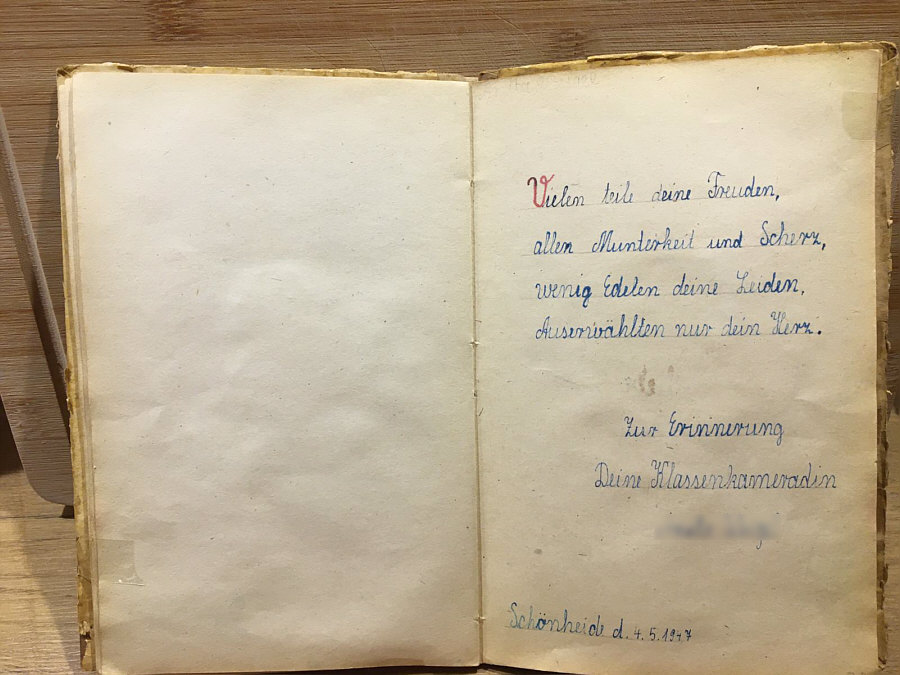 Vielen teile deine Freuden,
allen Munterkeit und Scherz,
wenig Edelen deine Leiden,
Auserwählten nur dein Herz.
Zur Erinnerung
Deine Klassenkameradin
Schönheide d. 4.5.1947